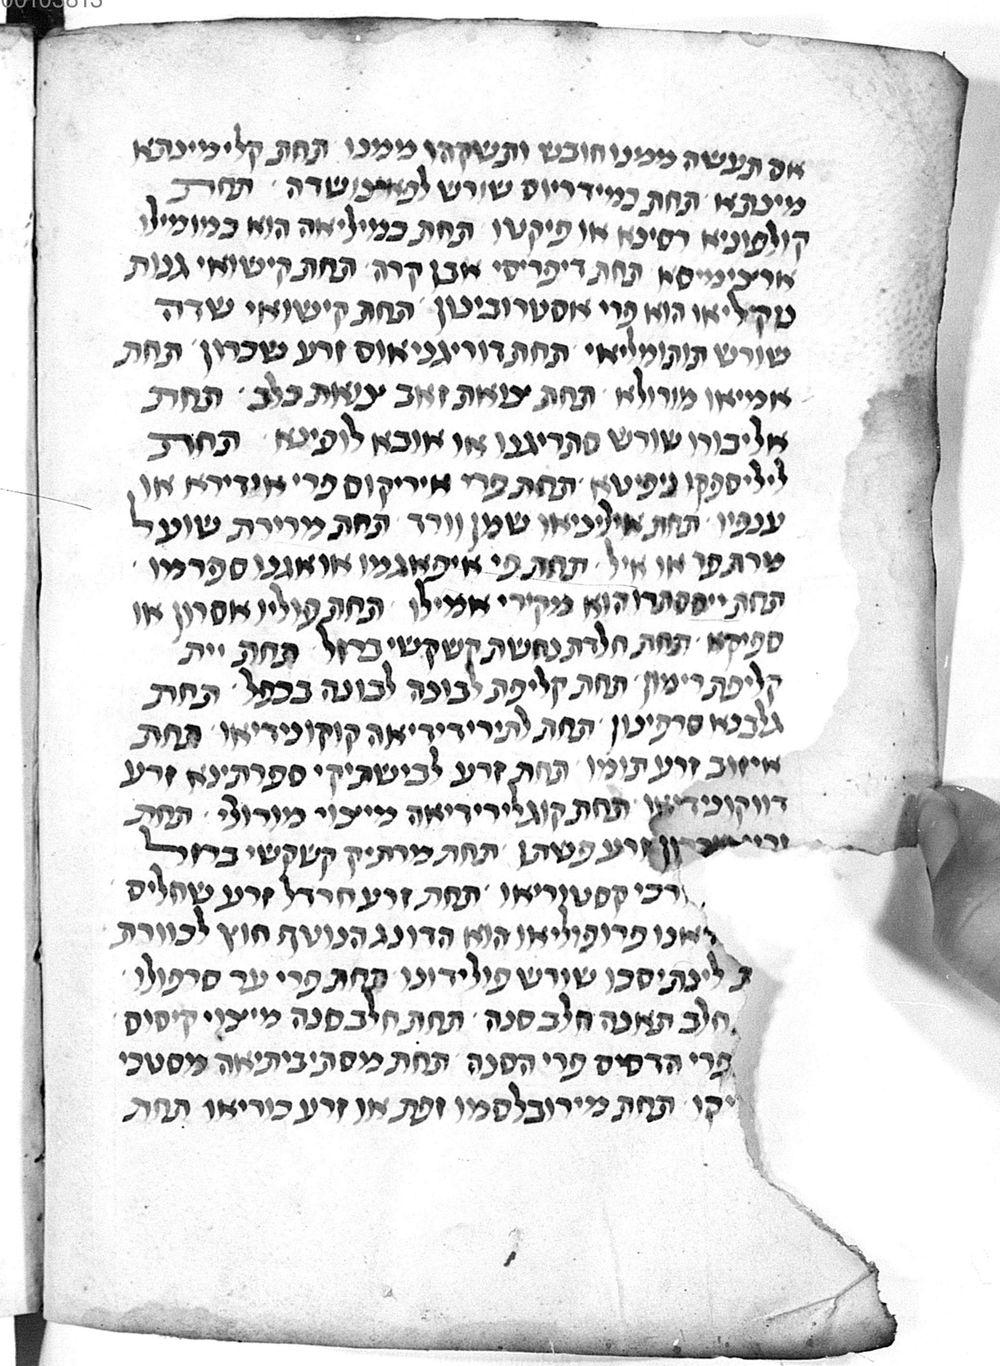 00103813
אם תעשה ממנו חובש ותשקהו ממנו תחת קלימינתא
מינתא תחת כמידריוס שורש שדה תחת
קולפוניא רסינא או פיקטו תחת כמיליאה הוא כמומילו
ארצימיסא תחת דיפריסי אבן קרה תחת קישואי גנות
הוא פרי אסטרוביטון תחת קישואי שדה
שורש תותומליאי תחת דוריגניאוס זרע שכרון תחת
אמיאו מורולא תחת צואת זאב צואת כלב תחת
אליבורו שורש סתריגנו או אובא לופינא תחת
ליליספקו ניפיטא תחת פרי איריקוס פרי אנדירא או
ענפיו תחת איליניאו שמן וורד תחת מרירת שועל
מרת פר או איל תחת פי איפאגמו או אגנו ספרמו
תחת הוא מקירי אמילו תחת פוליו אסרון או
ספיקא תחת חלדת נחשת קשקשי ברזל תחת יית
קליפת רימון תחת קליפת לבונה לבונה בכפל תחת
גלבנא סרפינון תחת לתירידיאה קוקונידיאו תחת
איזוב זרע תומו תחת זרע לבישתיקי ספרתינא זרע
דווקונידיאו תחת קוגלירידיאה מיצוי מורוצי תחת
זרע פשתן תחת מרתיק קשקשי ברזל
ורבי קסטוריאו תחת זרע חרדל זרע שחליס
פרופוליאו הוא הדונג הנוטף חוץ לכוורת
לינתיסכו שורש פולידונו תחת פרי ער סרפולו
חלב תאנה חלב סנה תחת חלב סנה מיצוי קיסוס
פרי הדסים פרי הסנה תחת מסתיביתיאה מסטכי
יקו תחת מירובלסמו זפת או זרע כוריאו תחת